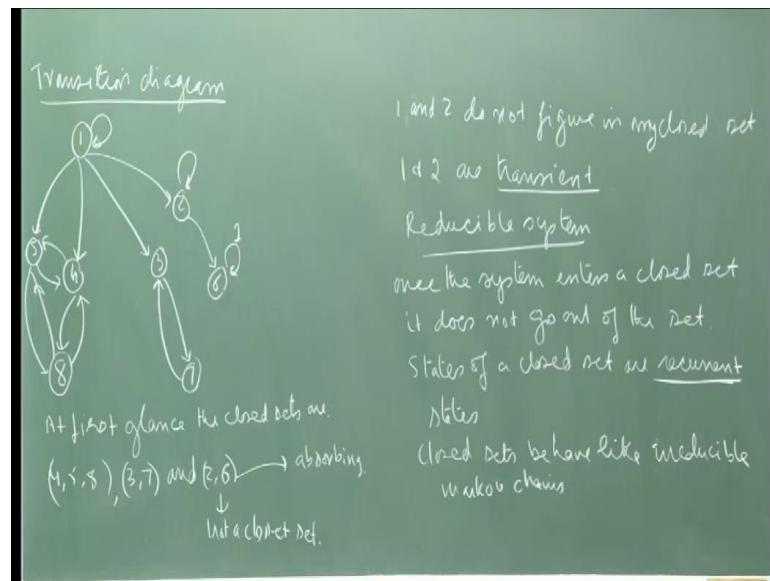 Transition diagram
1
2
5
4
3
6
1
8
7
At first glance the closed sets are.
(4,5,8), (3,7) and (2,6) → absorbing.
↓
Not a closet set.
1 and 2 do not figure in any closed set
1 & 2 are transient
Reducible system
once the system enters a closed set
it does not go out of the set.
States of a closed set are recurrent
states
Closed sets behave like irreducible
markov chains